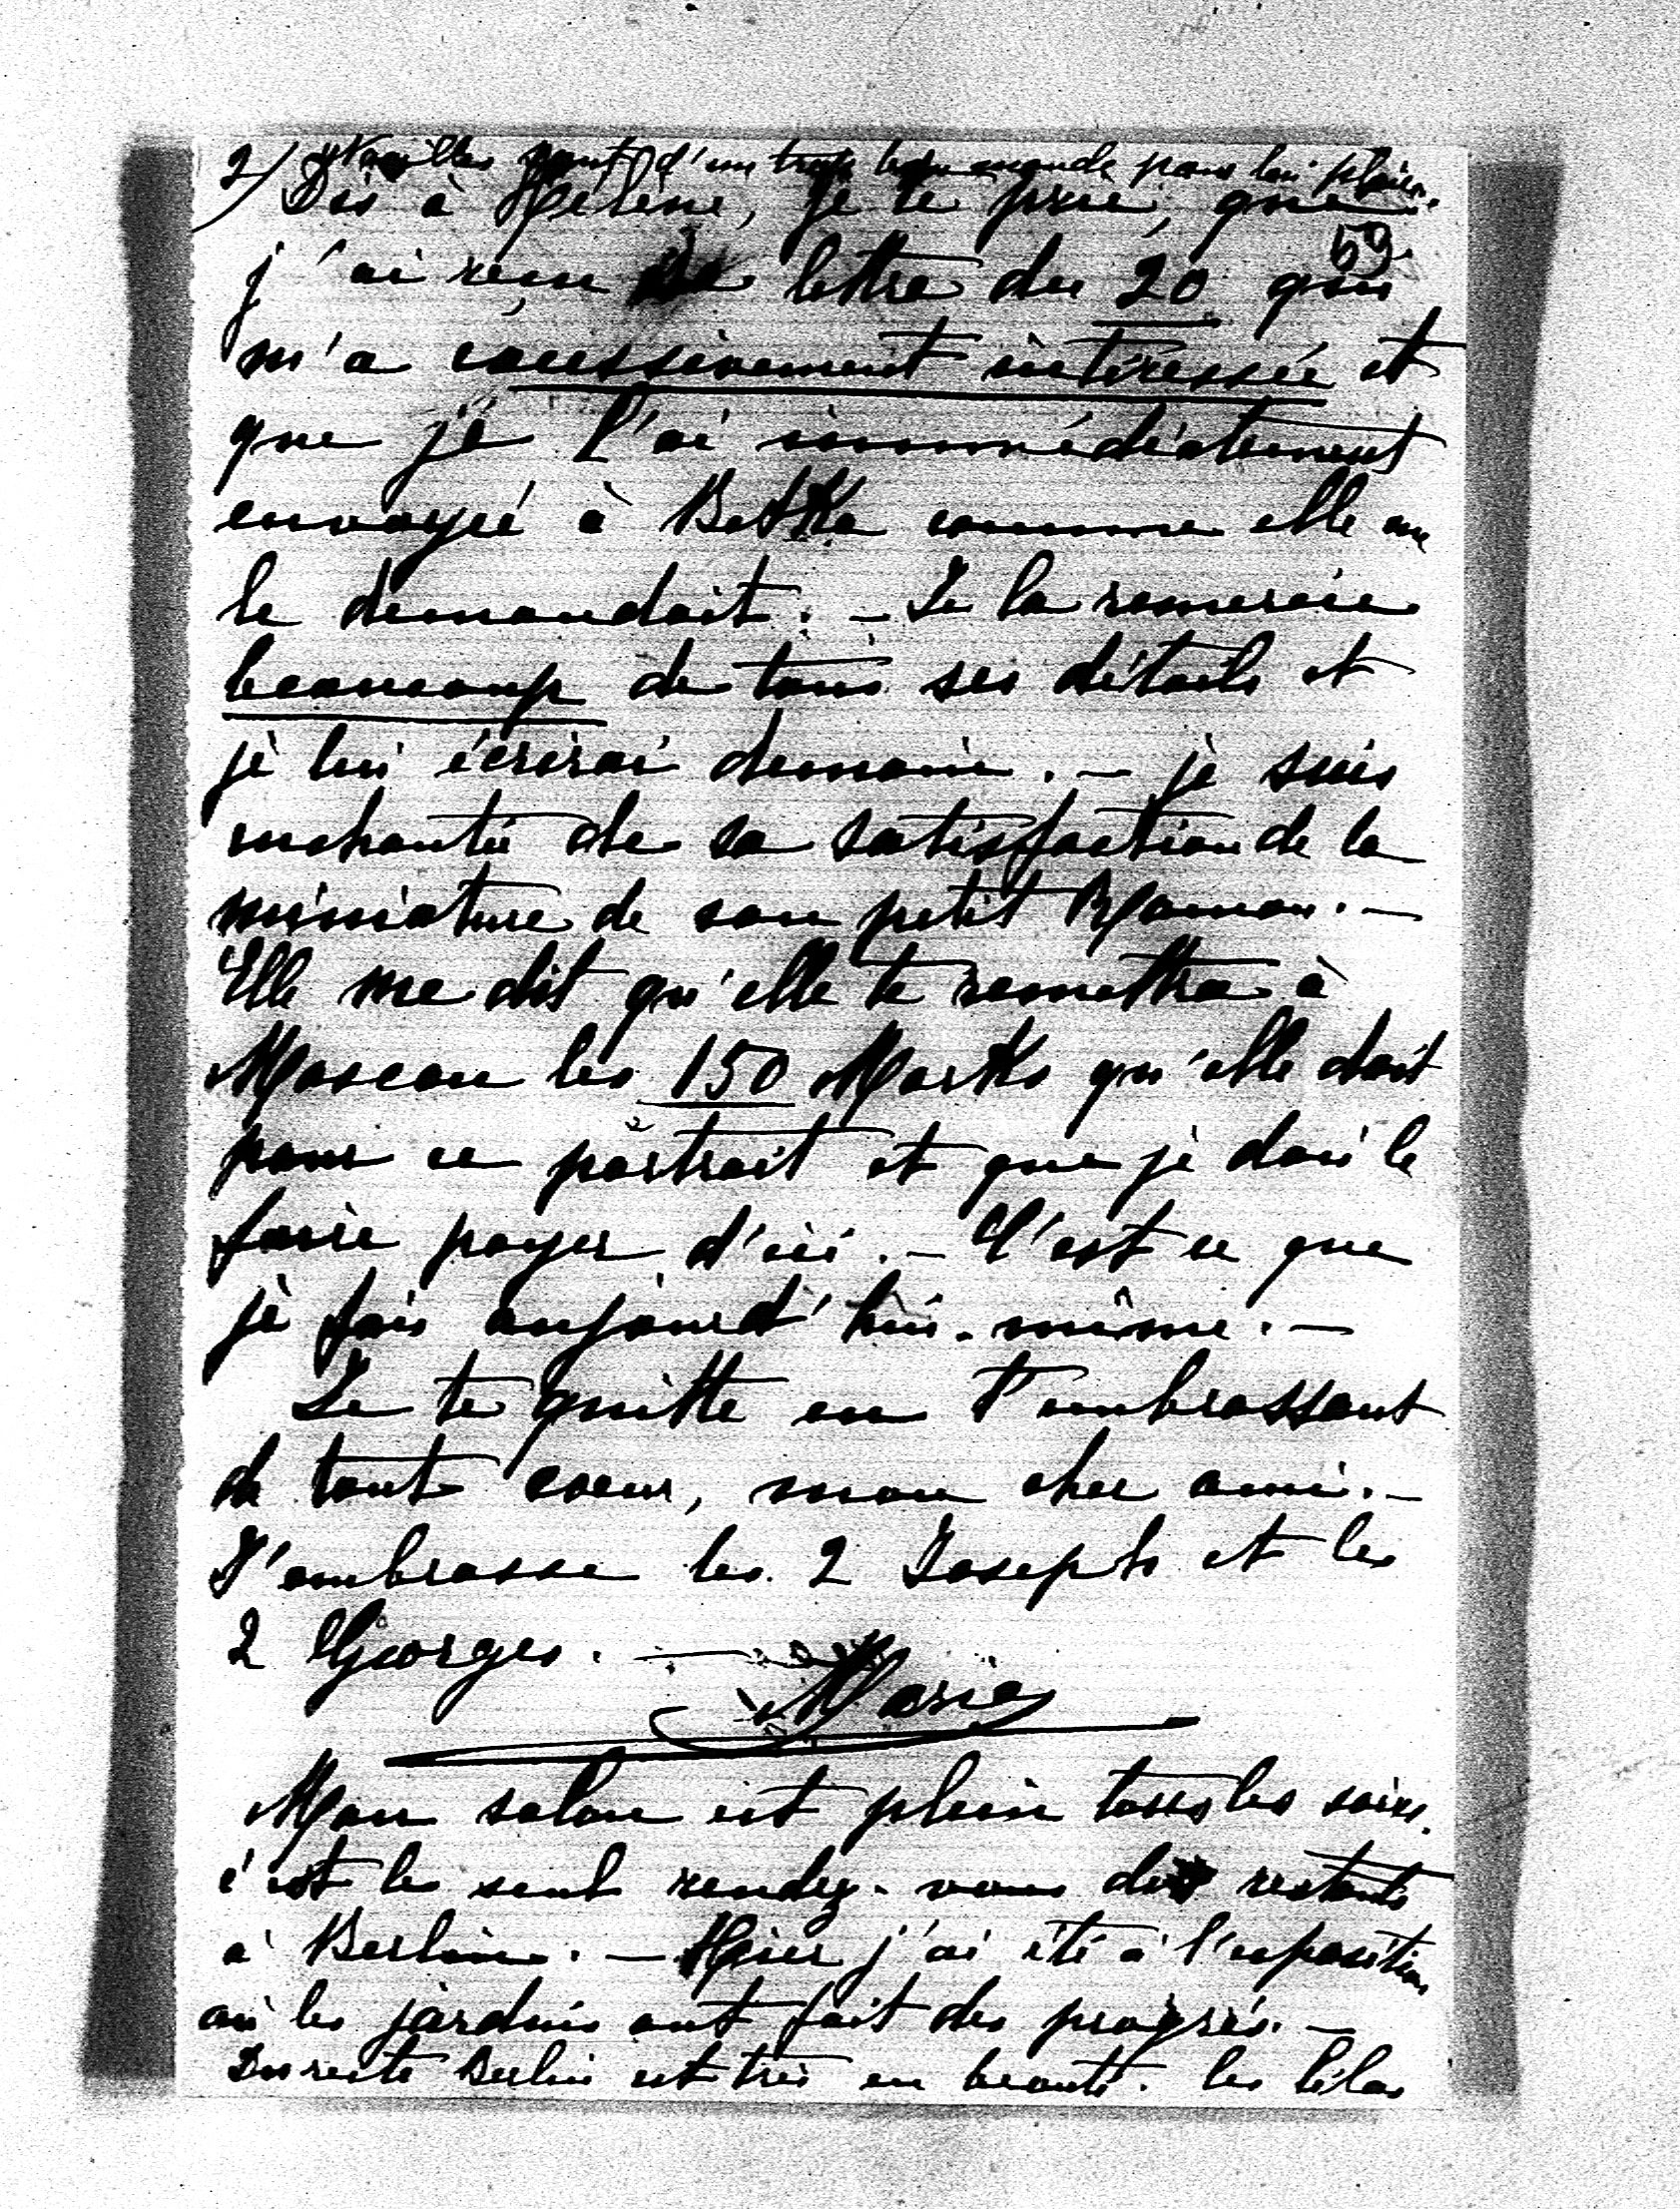 2/ Noailles sont d'un trop beau monde pour lui plaire.
Dis à Hélène, je te prie, que
59
j'ai reçu sa lettre du 20 qui
m'a excessivement intéressée et
que je l'ai immédiatement
envoyé à Betka comme elle me
le demandait. – Je la remercie
beaucoup de tous ses détails et
je lui écrirai demain. – je suis
enchantée de sa satisfaction de la
miniature de son petit Maman. –
Elle me dit qu'elle te remettra à
Moscou les 150 Marks qu'elle doit
pour ce portrait et que je dois le
faire payer d'ici. – C'est ce que
je fais aujourd'hui-même. –
Je te quitte en t'embrassant
de tout coeur, mon cher ami. –
J'embrasse les 2 Josephs et les
2 Georges. –
Marie
Mon salon est plein tous les soirs.
c'est le seul rendez-vous des restants
à Berlin. – Hier j'ai été à l'exposition
où les jardins ont fait des progrès. –
Du reste Berlin est très en beauté. les lilas